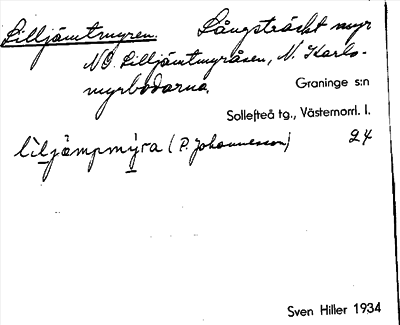 Lilljämtmyren. Långsträckt myr
NO. Lilljämtmyråsen, N. Karls-
myrbodarna.
Graninge s:n
Sollefteå tg., Västernorrl. l.
lìljä̀mpmýra (P. Johannesson) 24
Sven Hiller 1934